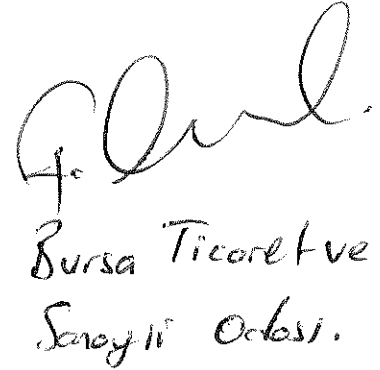 Bursa Ticaret ve
Sanayii Odası.